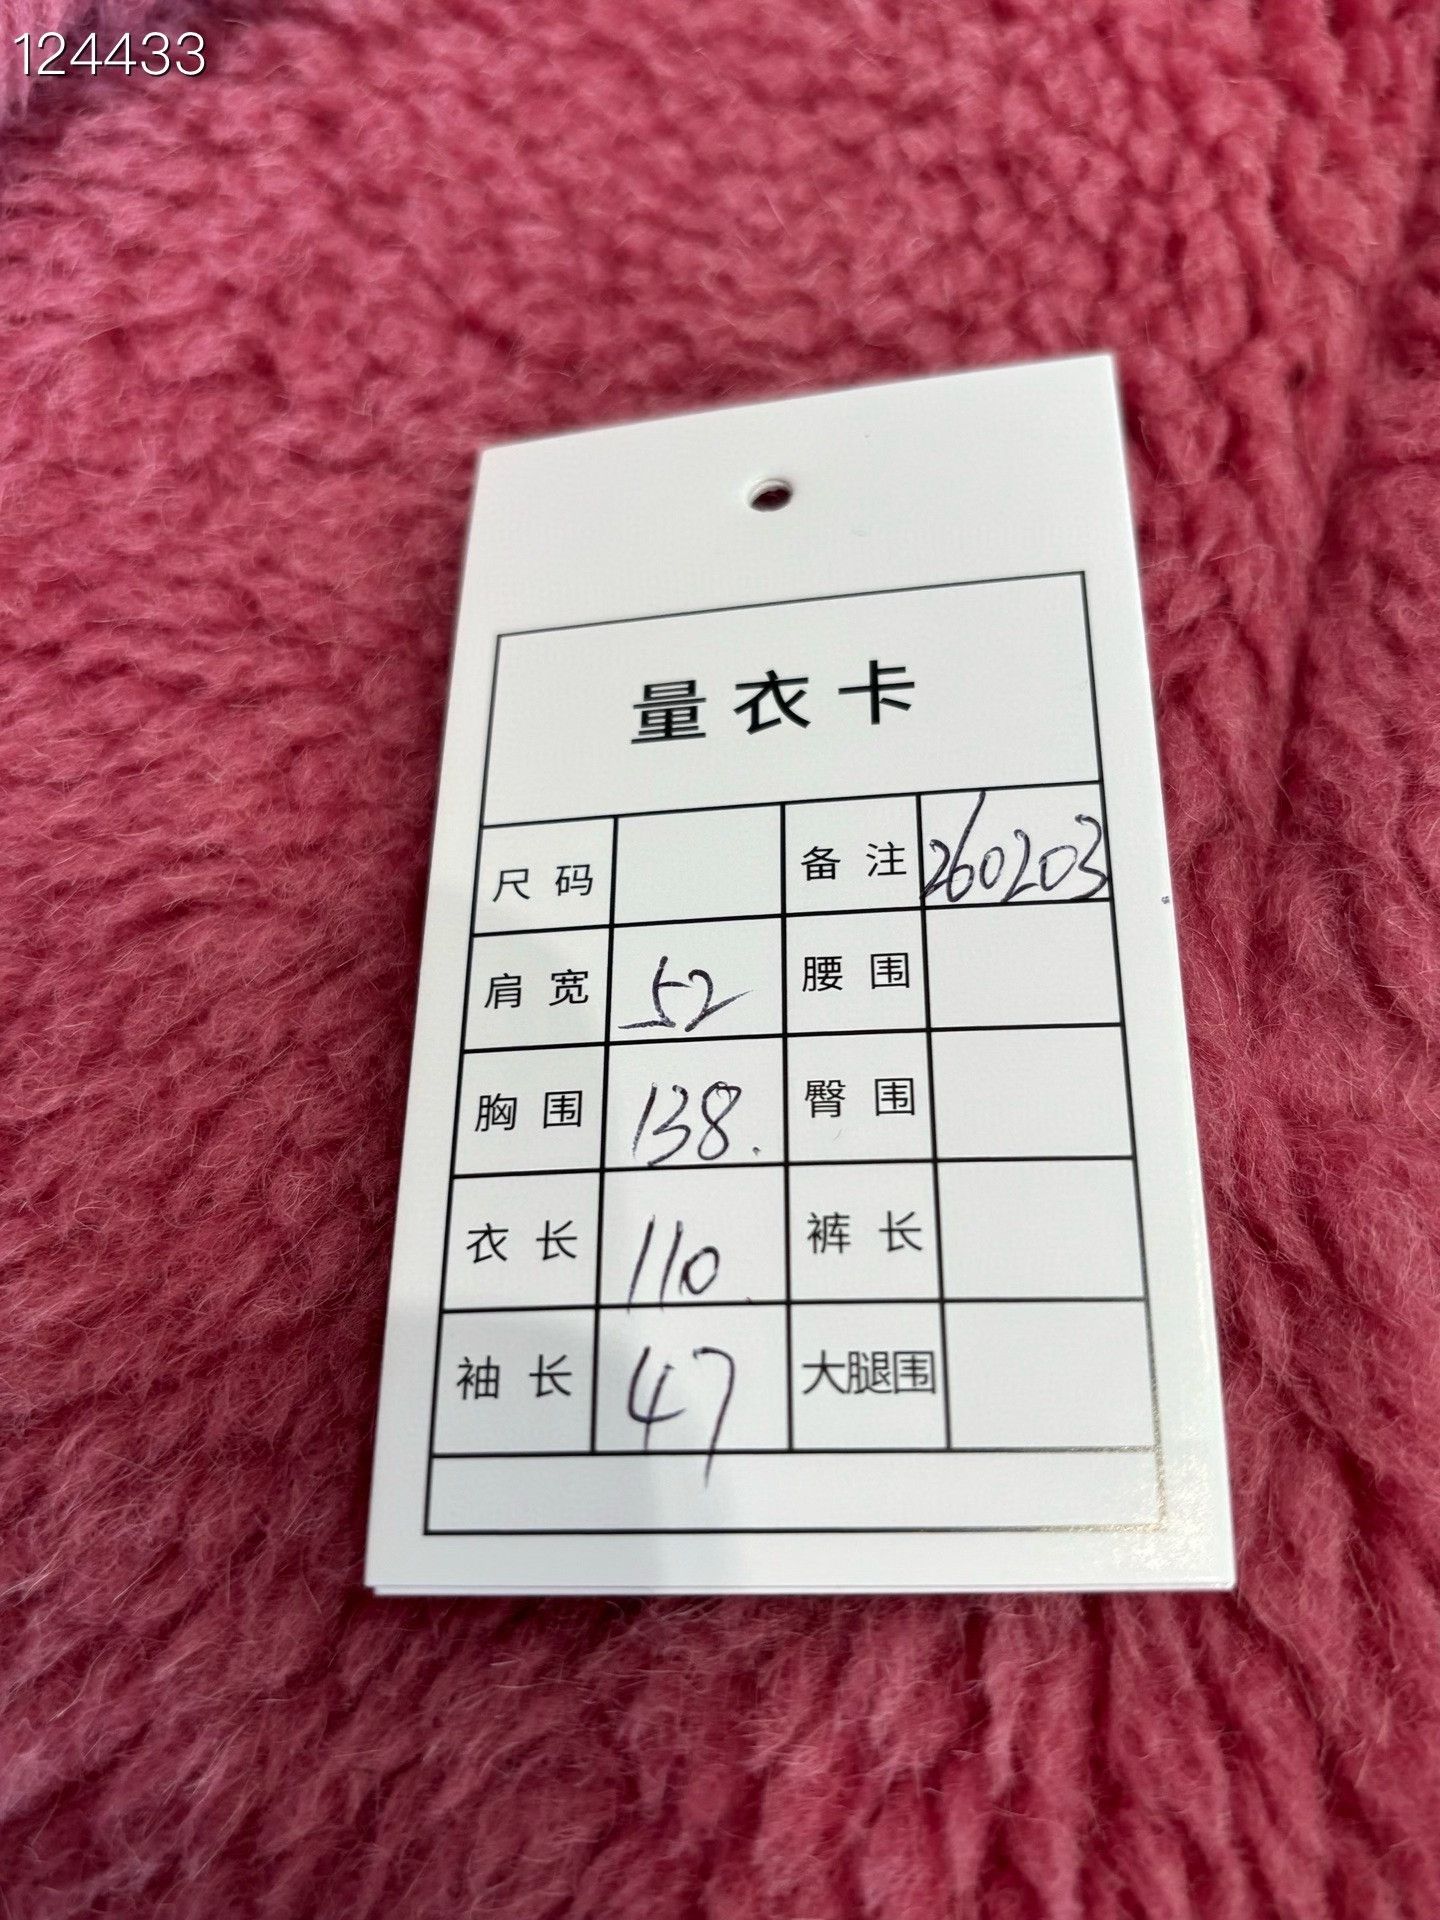 124433
量衣卡
尺码 备注 260203
肩宽 52 腰围
胸围 138. 臀围
衣长 110 裤长
袖长 47 大腿围